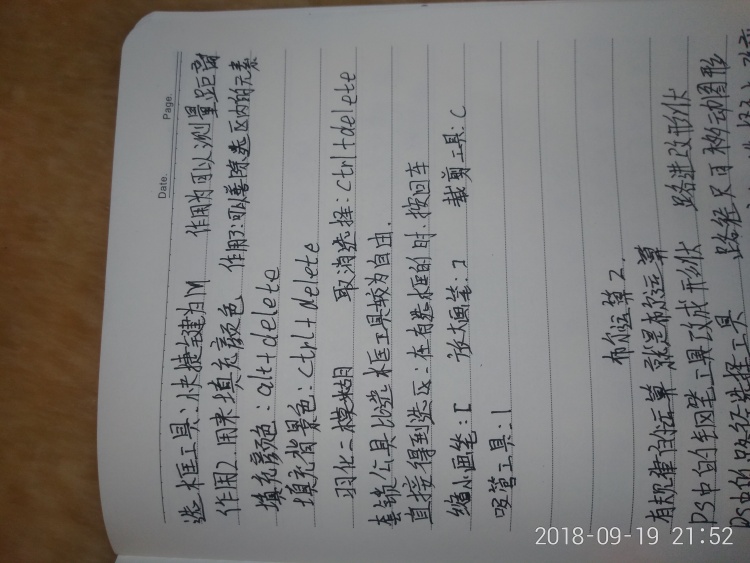 Date. Page.
选框工具:快捷键为M 作用为可以测量距离
作用2.用来填充颜色 作用3:可以删除选区内的元素
填充颜色:alt+delete
填充背景色:ctrl+delete
羽化=模糊 取消选择:ctrl+delete
套锁公具比选框工具较为自由.
直接得到选区:在有选框的时.按回车
缩小画笔:[ 放大画笔:] 裁剪工具:C
吸管工具:I
布尔运算2.
有规律的运算 就是布尔运算
Ps中的钢笔工具改成形状 路径改形状
Ps中的路径选择工具 路径尺可移动图形
2018-09-19 21:52